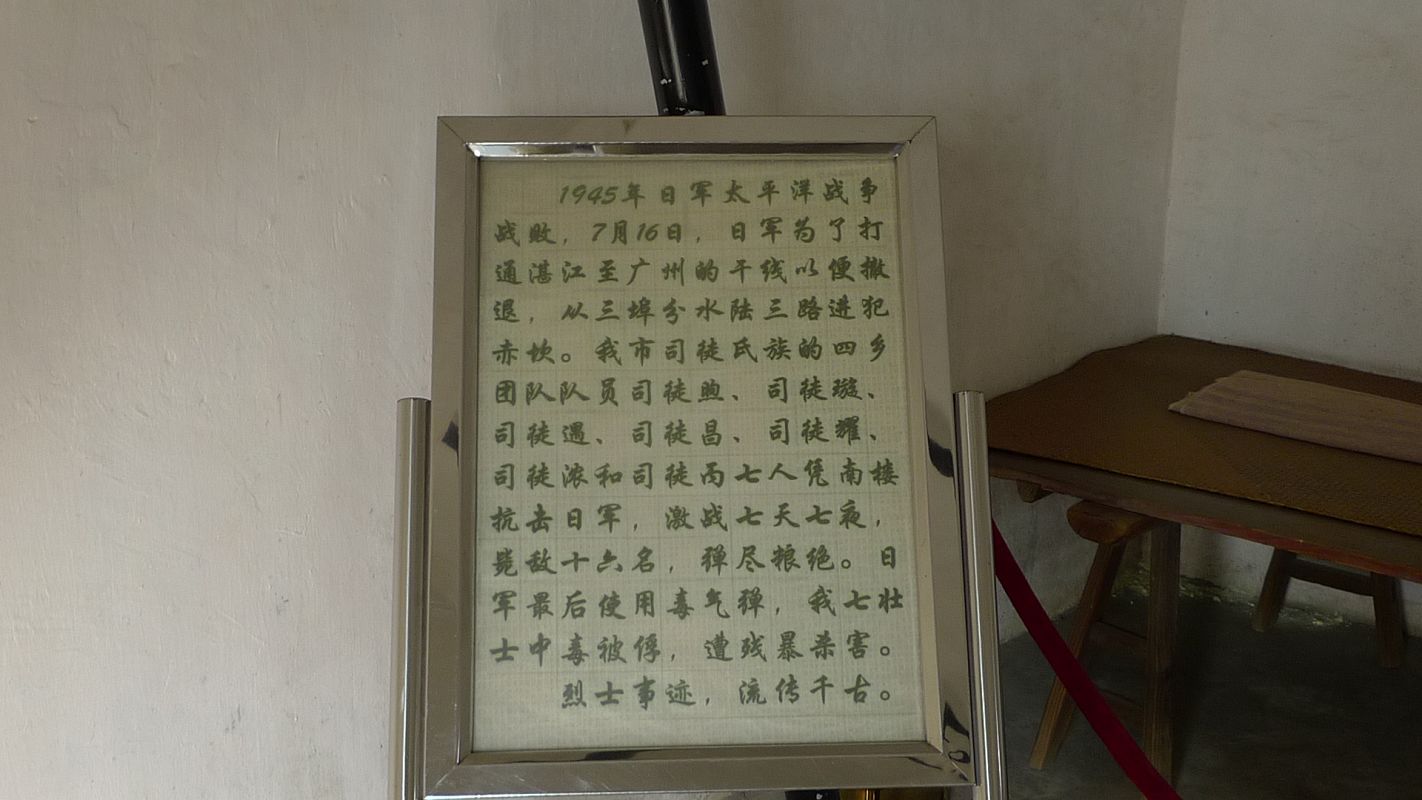 1945年日军太平洋战争
战败，7月16日，日军为了打
通湛江至广州的干线以便撤
退，从三埠分水陆三路进犯
赤坎。我市司徒氏族的四乡
团队队员司徒煦、司徒璇、
司徒遇、司徒昌、司徒耀、
司徒浓和司徒丙七人凭南楼
抗击日军，激战七天七夜，
毙敌十六名，弹尽粮绝。日
军最后使用毒气弹，我七壮
士中毒被俘，遭残暴杀害。
烈士事迹，流传千古。